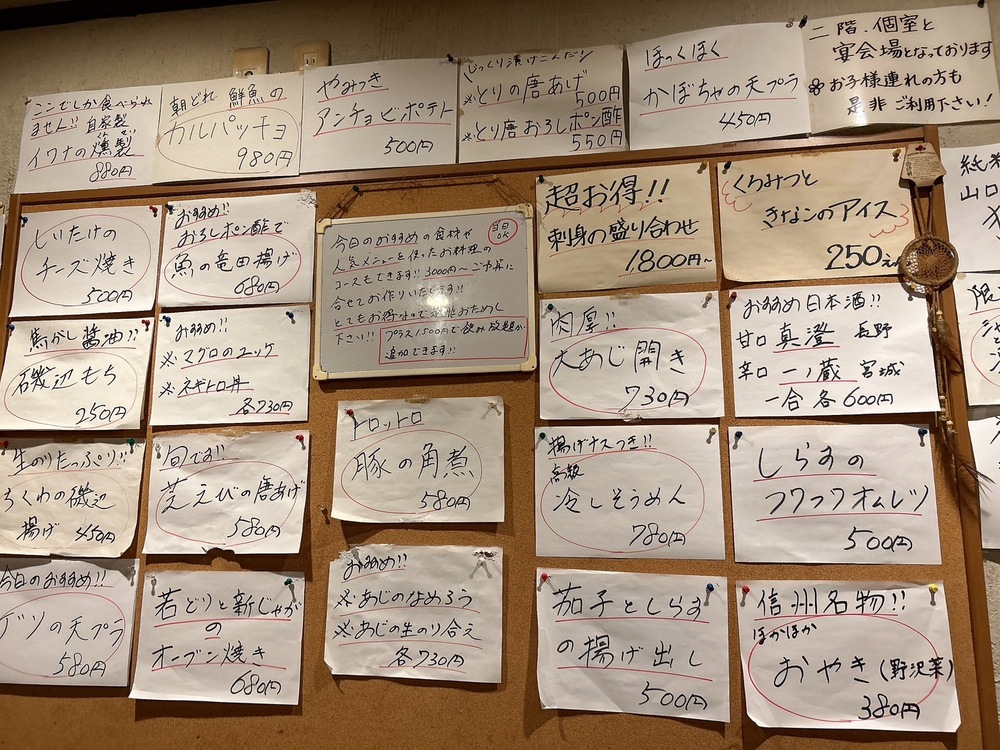 ここでしか食べられ
ません!! 自家製
イワナの燻製
880円
朝どれ 鮮魚の
カルパッチョ
980円
やみつき
アンチョビポテト
500円
じっくり漬けこんだ!!
※とりの唐あげ
500円
※とり唐おろしポン酢
550円
ほっくほく
かぼちゃの天プラ
450円
二階、個室と
宴会場となっております
お子様連れの方も
是非ご利用下さい!
しいたけの
チーズ焼き
500円
おすすめ!!
おろしポン酢で
魚の竜田揚げ
680円
今日のおすすめの食材や
当日OK
人気メニューを使ったお料理の
コースもできます!! 3000円〜ご予算に
合せてお作りいたします!!
とてもお得なので是非おためし
下さい!!
プラス1500円で飲み放題が
追加できます!!
超お得!!
刺身の盛り合わせ
1,800円~
くろみつと
きなこのアイス
250円
焦がし醤油!!
磯辺もち
250円
おすすめ!!
※マグロのユッケ
※ネギトロ丼
各730円
肉厚!!
大あじ開き
730円
おすすめ日本酒!!
甘口 真澄 長野
辛口 一ノ蔵 宮城
一合 各600円
生のりたっぷり!!
ちくわの磯辺
揚げ 450円
旬です!!
芝えびの唐あげ
580円
トロットロ
豚の角煮
580円
揚げナスつき!!
高級
冷しそうめん
780円
しらすの
フワフワオムレツ
500円
今日のおすすめ!!
ゲソの天プラ
580円
若どりと新じゃが
の
オーブン焼き
680円
おすすめ!!
※あじのなめろう
※あじの生のり合え
各730円
茄子としらす
の揚げ出し
500円
信州名物!!
ほかほか
おやき(野沢菜)
380円